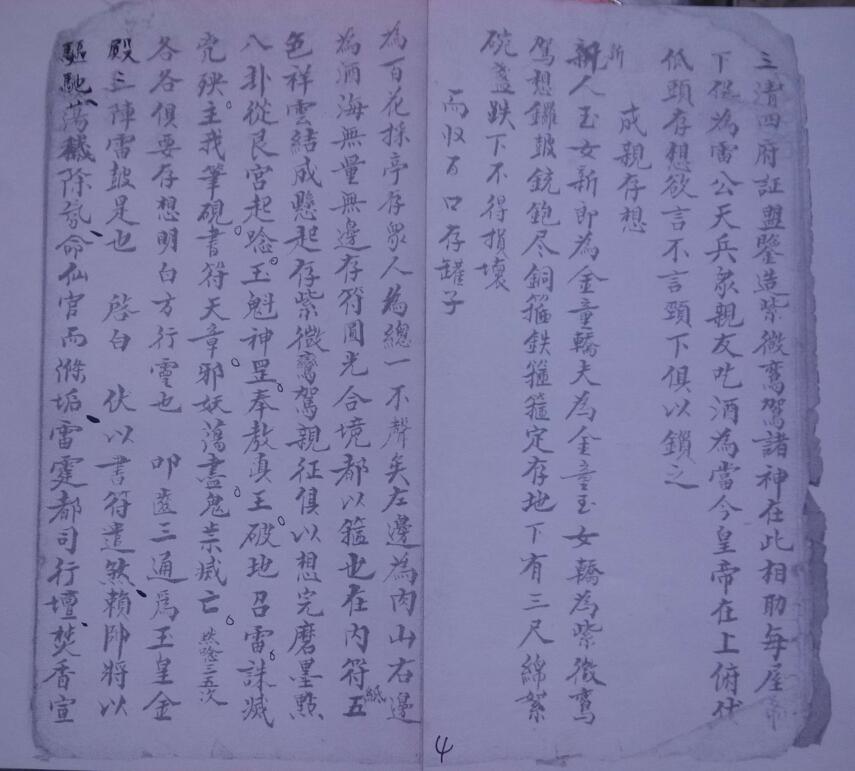 三清四府証盟鑒造紫微鸞駕諸神在此相助每屋帝
下保為雷公天兵衆親友吃酒為當今皇帝在上俯伏
低頭存想欲言不言頸下俱以鎖之
成親存想
新
新人玉女新郎為金童轎夫為金童玉女轎為紫微鸞
駕想鑼鼓銃鉋尽銅箍鉄箍箍定存地下有三尺綿絮
碗盞跌下不得損壞
而收百口存罐子
4
為百花採亭存衆人為總一不聲矣左邊為肉山右邊
為酒海無量無邊存符圓光合境都以箍也在内符五
紙
色祥雲結成懸起存紫微鸞駕親征俱以想完磨墨點
八卦從艮宮起唸玉魁神罡奉教真王破地召雷誅滅
兇殃主我筆硯書符天章邪妖蕩盡鬼祟滅亡 然唸三五次
各各俱要存想明白方行灵也 叩齒三通為玉皇金
殿三陣雷鼓是也 啓白 伏以書符遣煞賴帥將以
驅馳蕩穢除氛命仙官而滌垢雷霆都司行壇焚香宣